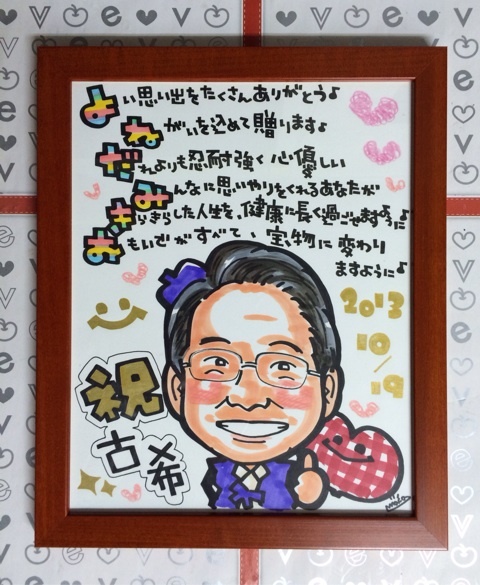 よい思い出をたくさんありがとう♪
ねがいを込めて贈ります♪
だれよりも忍耐強く心優しい
みんなに思いやりをくれるあなたが
きらきらした人生を、健康に長く過ごせますように♪
おもいでがすべて、宝物に変わり
ますように♪
2013
10/19
祝
古希